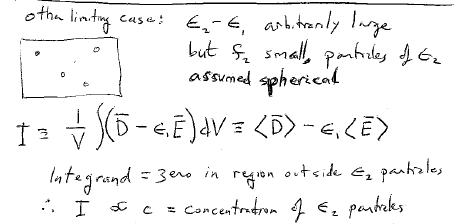 other limiting case: ϵ₂-ϵ₁ arbitrarily large
but f₂ small, particles of ϵ₂
assumed spherical
I ≡ 1/V ∫(D̄ - ϵ₁Ē)dV ≡ <D̄> - ϵ₁<Ē>
Integrand = zero in region outside ϵ₂ particles
∴ I ∝ c = concentration of ϵ₂ particles